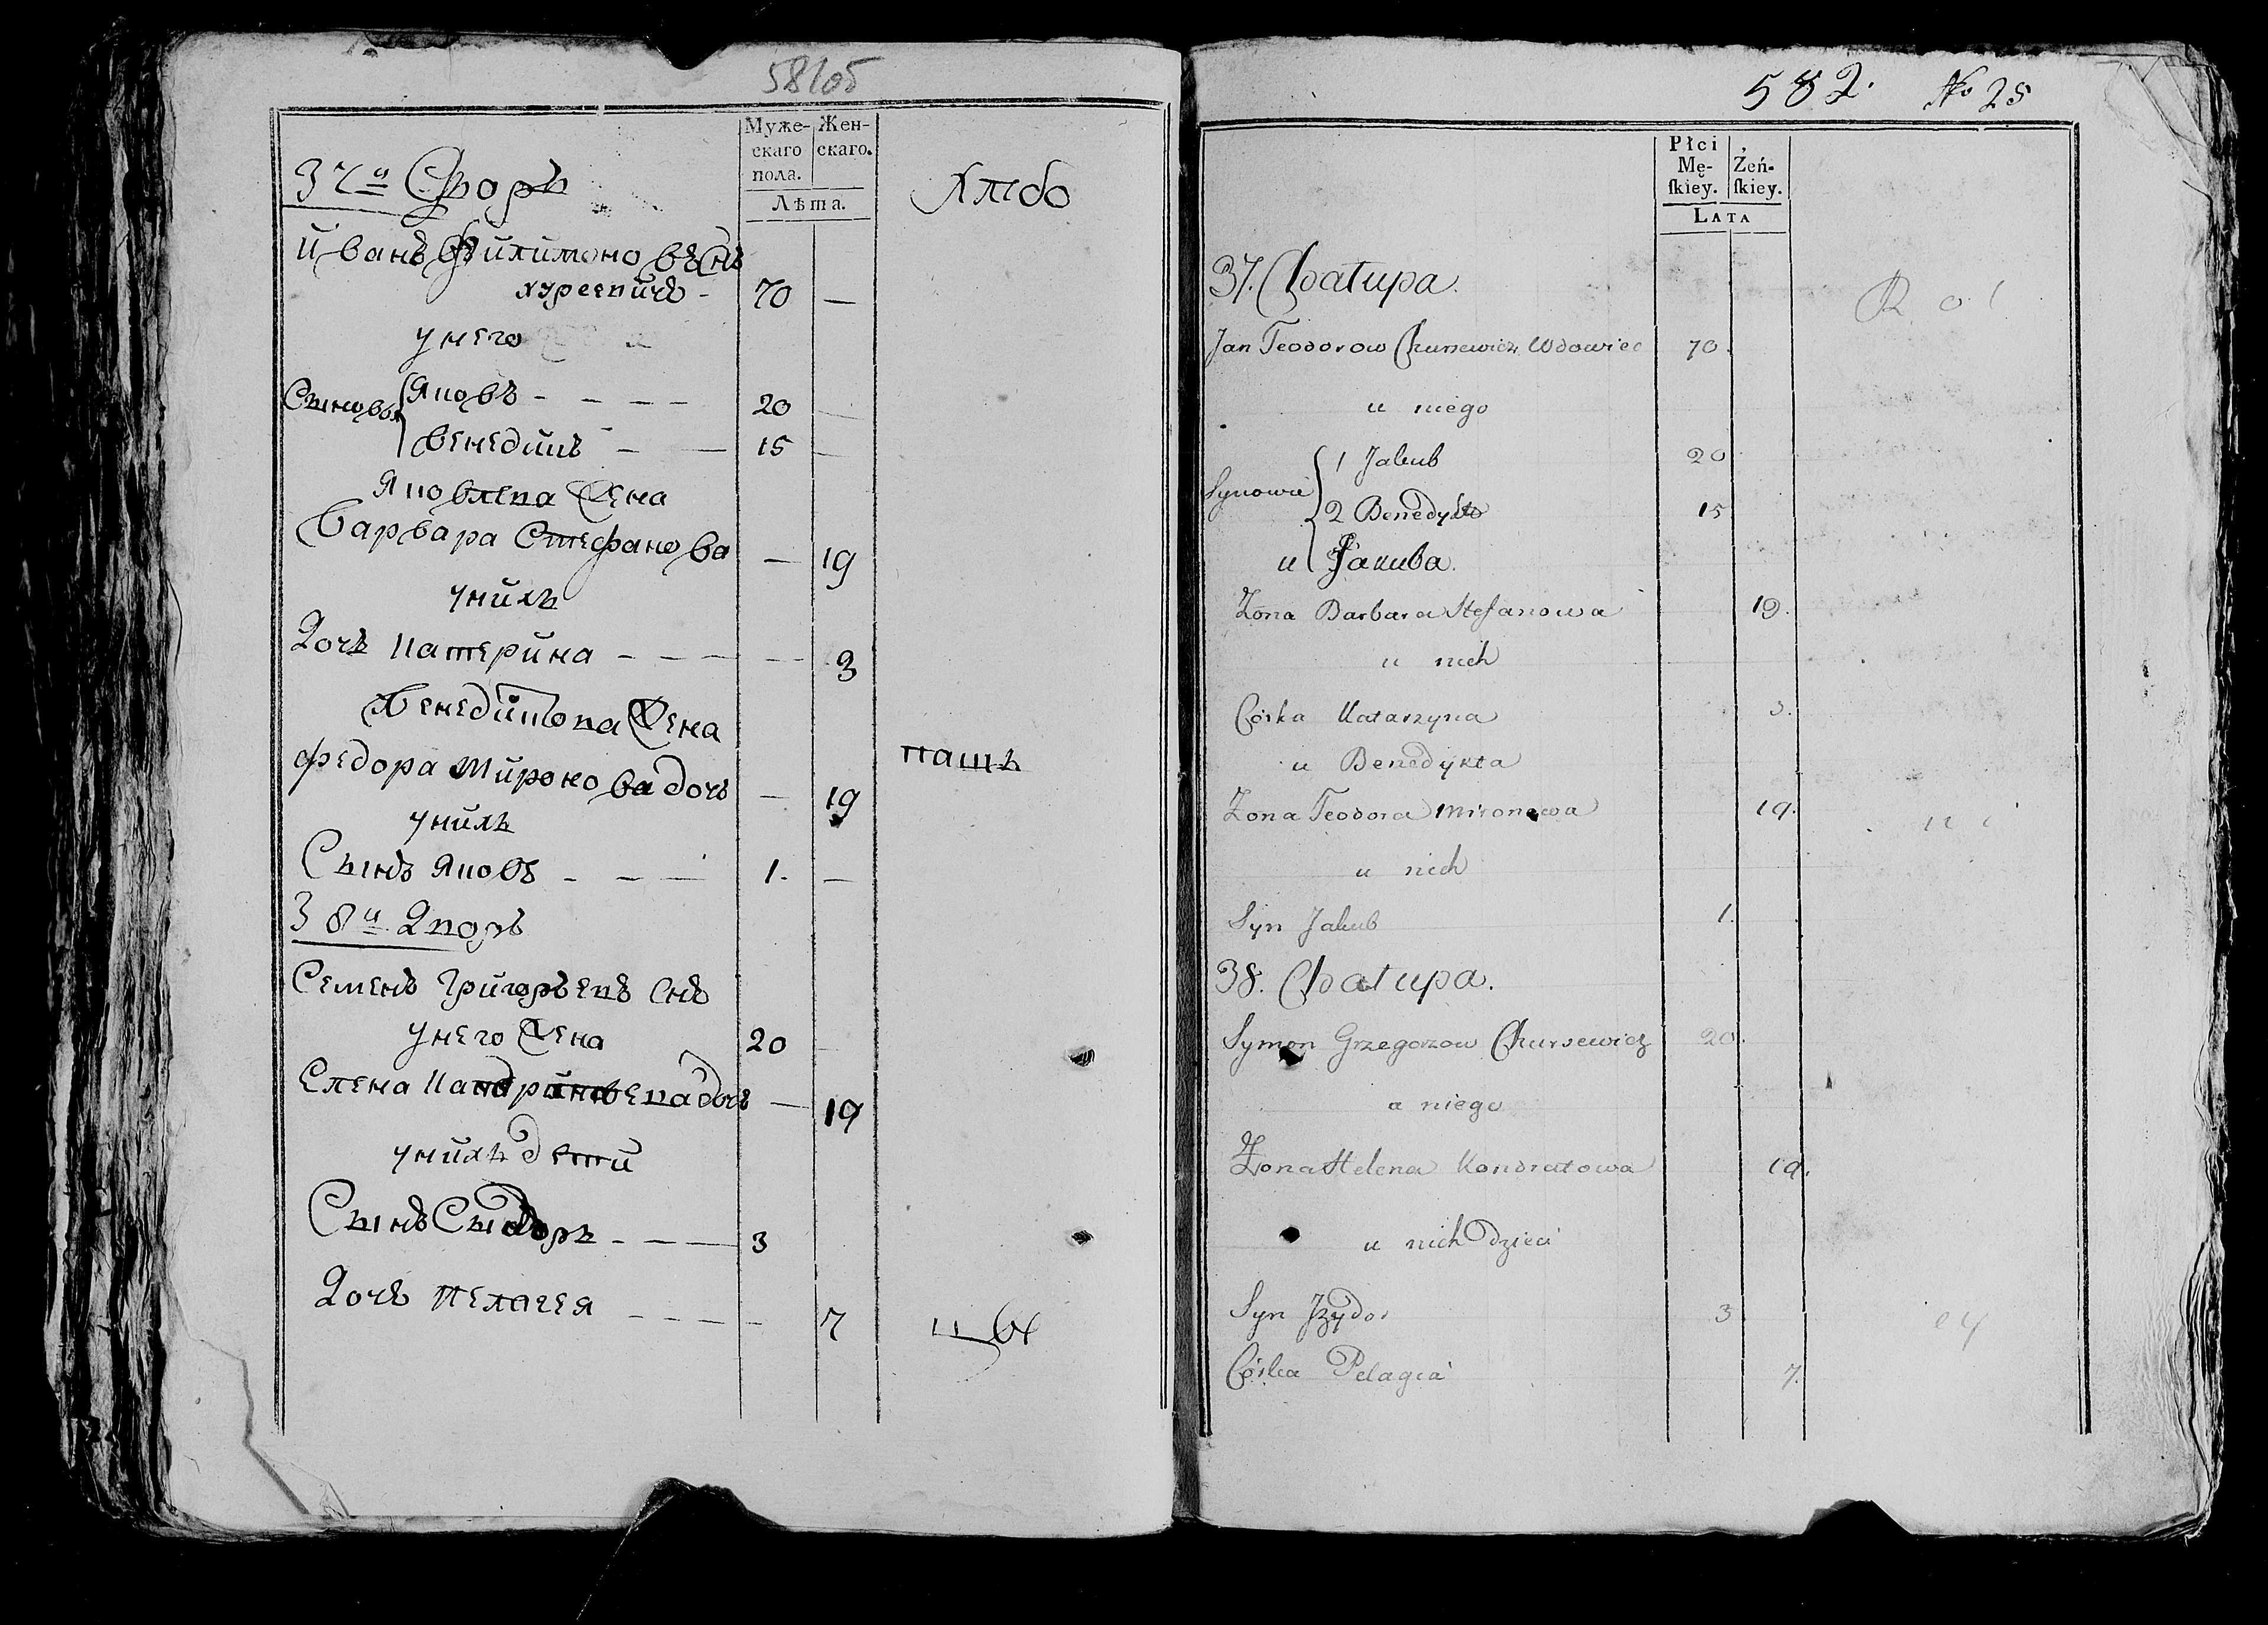 581об
Муже-
скаго
пола.
Жен-
скаго.
Лѣта.
37й Дворъ
Хлѣбо
Иванъ Филимоновъ Снъ
Хурсевичъ - 70 —
у него
Сыновья
Яковъ - - - - 20 —
Бенедыктъ - — 15 —
Яковлева Жена
Варвара Стефанова — 19
у нихъ
Дочь Катерина - - - - 3
Бенедиктова Жена
Федора Миронова дочь — 19
пашъ
у нихъ
Сынъ Яковъ - - — 1. —
38й Дворъ
Семенъ Григорьевъ Снъ
у него Жена 20 —
Елена дочь — 19
у нихъ дети
Сынъ Сыдоръ - - — 3
Дочь Пелагея - - - - 7
цы
582. № 25
Płci
Mę-
ſkiey.
Żeń-
ſkiey.
LATA
37. Chatupa.
Ro
Jan Teodorow Chursewicz Wdowiec 70.
u niego
Synowie
1 Jakub 20
2 Benedykt 15
u Jakuba.
Żona Barbara Stefanowa 19.
u nich
Córka Katarzyna 3.
u Benedykta
Żona Teodora Mironowa 19.
u nich
Syn Jakub 1.
38. Chatupa.
Symon Grzegorzow Chursewicz 20.
u niego
Żona Helena Kondratowa 19.
u nich Dzieci
Syn Jzydor 3
Córka Pelagia 7.